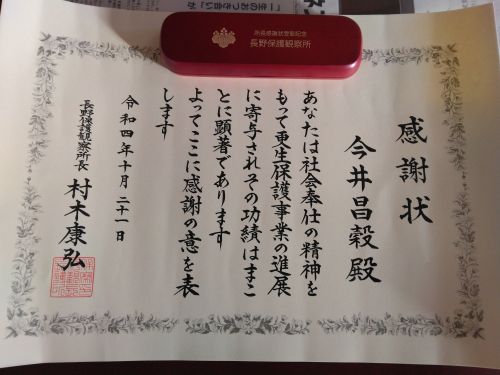 所長感謝状受彰記念
長野保護観察所
感謝状
今井昌毅殿
あなたは社会奉仕の精神を
もって更生保護事業の進展
に寄与されその功績はまこ
とに顕著であります
よってここに感謝の意を表
します
令和四年十月二十一日
長野保護観察所長 村木康弘